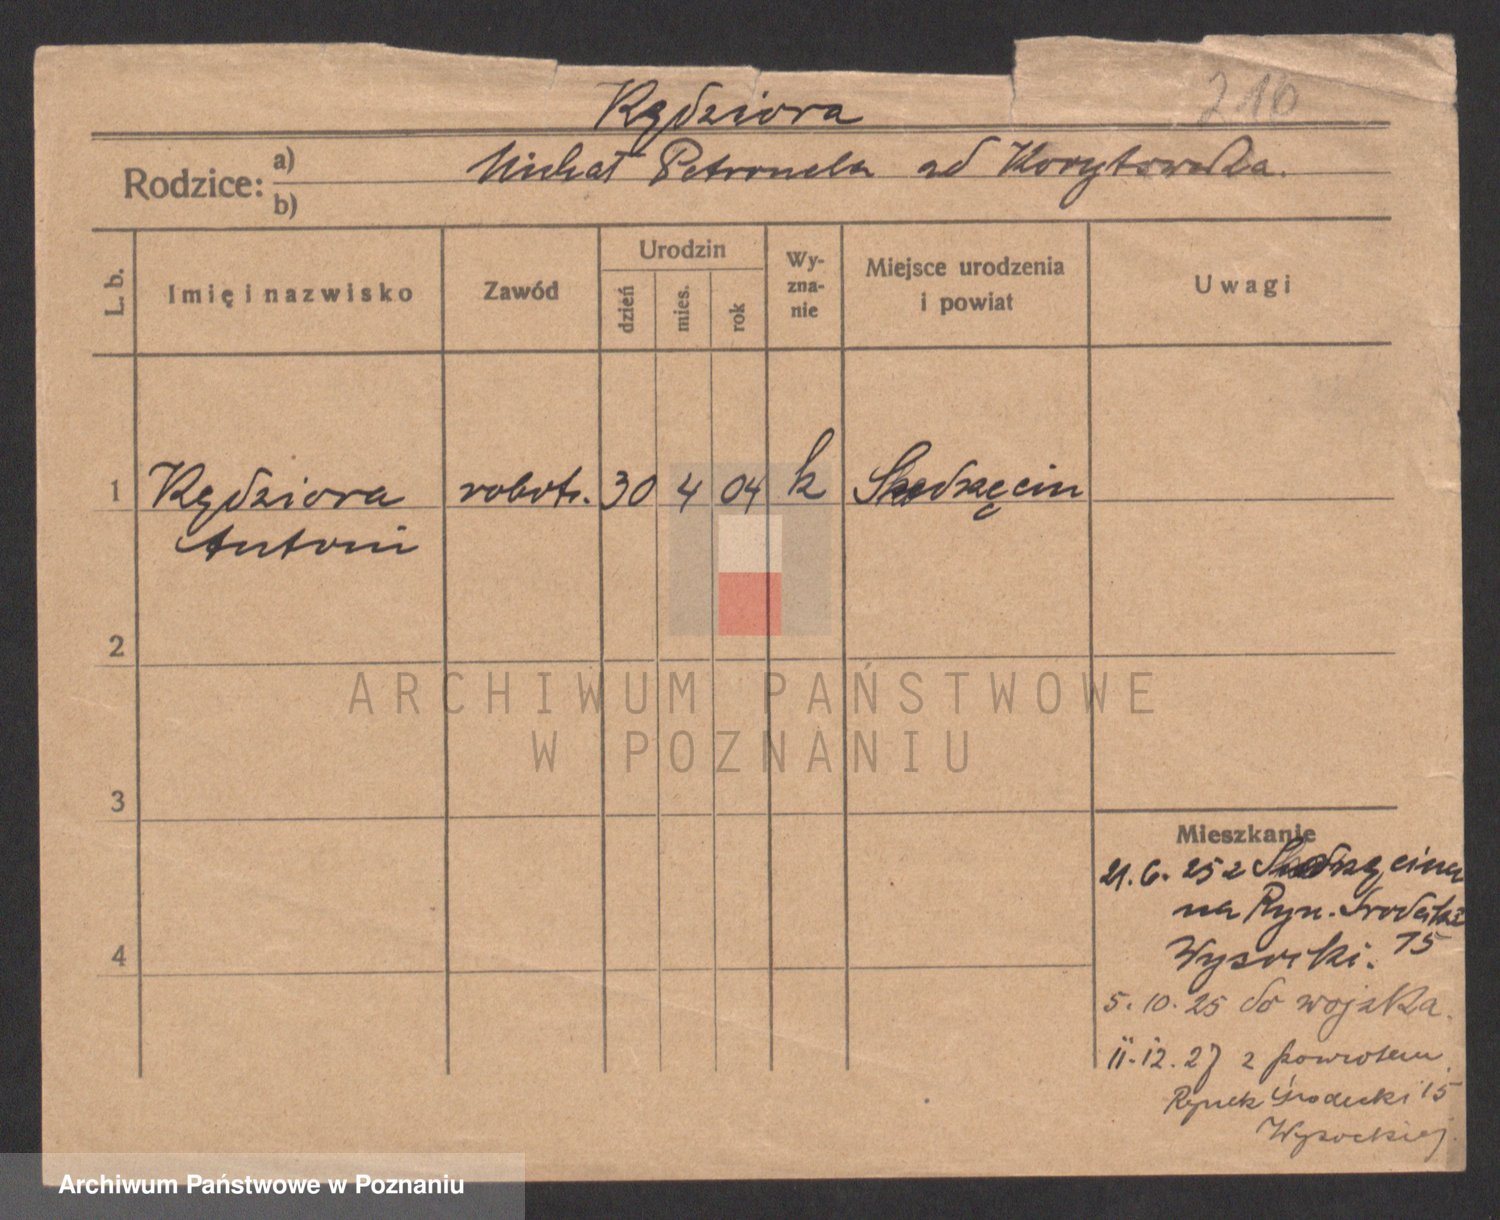 210
Kędziora
Rodzice: a) Michał Petronela zd Korytowska.
b)
L. b. Imię i nazwisko Zawód Urodzin dzień mies. rok Wy-zna-nie Miejsce urodzenia i powiat Uwagi
1 Kędziora robotn. 30 4 04 k
Antoni
2
3
4
Mieszkanie
21.6.25 z
na Ryn. Śródecki
Wysocki. 15
5.10.25 do wojska.
11.12.27 z powrotem
Rynek Śródecki 15
Wysockiej.
ARCHIWUM PAŃSTWOWE
W POZNANIU
Archiwum Państwowe w Poznaniu